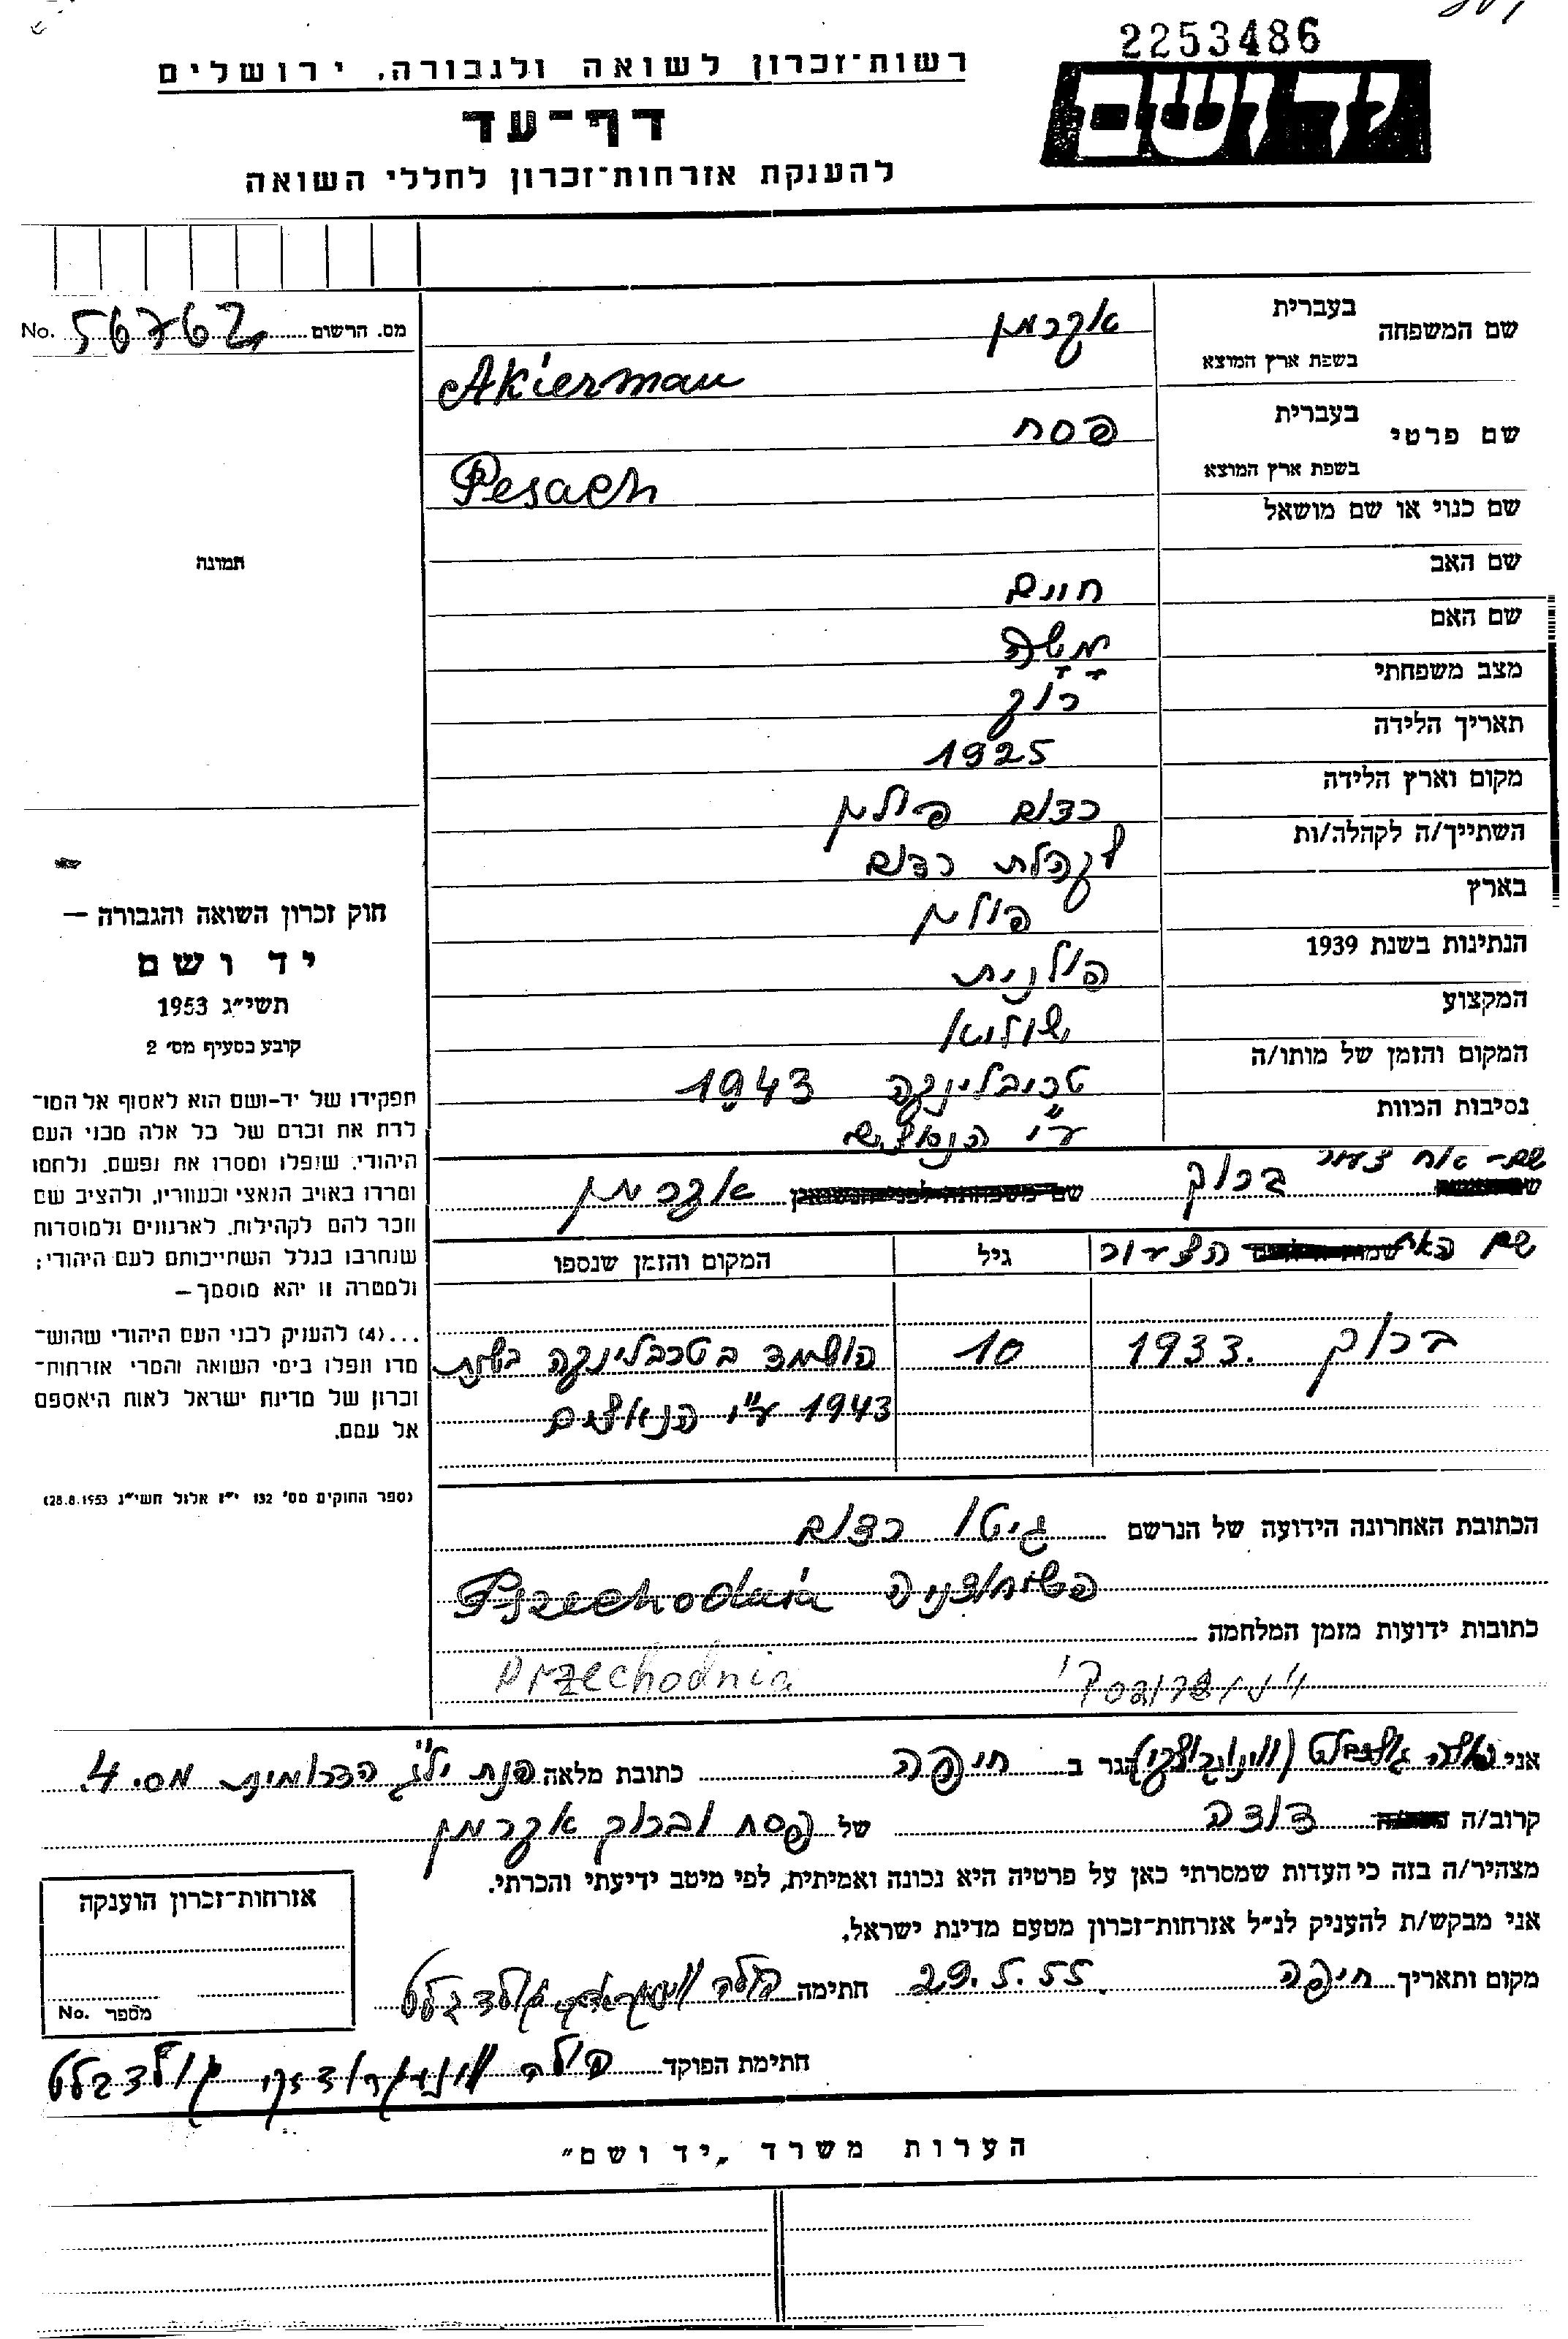 2253486
רשות־זכרון לשואה ולגבורה, ירושלים
ידושם
דף־עד
להענקת אזרחות־זכרון לחללי השואה
מס. הרשום 56762 No.
שם המשפחה
בעברית
אקרמן
בשפת ארץ המוצא
Akierman
שם פרטי
בעברית
פסח
בשפת ארץ המוצא
Pesach
שם כנוי או שם מושאל
שם האב
חיים
שם האם
משה
מצב משפחתי
רוק
תאריך הלידה
1925
מקום וארץ הלידה
רדום פולין
השתייך/ה לקהלה/ות
לקהלת רדום
בארץ
פולין
הנתינות בשנת 1939
פולנית
המקצוע
שוליא
המקום והזמן של מותו/ה
טריבלינקה 1943
נסיבות המוות
ע״י הנאצים
שם אח צעיר ברוך אקרמן
שם האח הצעיר
גיל
המקום והזמן שנספו
ברוך 1933. 10 הושמד בטרבלינקה בשנת
1943 ע״י הנאצים
הכתובת האחרונה הידועה של הנרשם גיטו רדום
Przechodnia
כתובות ידועות מזמן המלחמה
Przechodnia
תמונה
חוק זכרון השואה והגבורה —
יד ושם
תשי״ג 1953
קובע בסעיף מס׳ 2
תפקידו של יד-ושם הוא לאסוף אל המו־
לדת את זכרם של כל אלה מבני העם
היהודי, שנפלו ומסרו את נפשם, נלחמו
ומרדו באויב הנאצי ובעוזריו, ולהציב שם
וזכר להם לקהילות, לארגונים ולמוסדות
שנחרבו בגלל השתייכותם לעם היהודי;
ולמטרה זו יהא מוסמך—
...(4) להעניק לבני העם היהודי שהוש־
מדו ונפלו בימי השואה והמרי אזרחות־
זכרון של מדינת ישראל לאות היאספם
אל עמם.
(ספר החוקים מס׳ 132 י״ז אלול תשי״ג 28.8.1953)
אני
הגר ב חיפה כתובת מלאה פנת יל״ג הדרומית מס. 4
קרוב/ה דודה של פסח וברוך אקרמן
מצהיר/ה בזה כי העדות שמסרתי כאן על פרטיה היא נכונה ואמיתית, לפי מיטב ידיעתי והכרתי.
אני מבקש/ת להעניק לנ״ל אזרחות־זכרון מטעם מדינת ישראל.
מקום ותאריך חיפה 29.5.55 חתימה
חתימת הפוקד
אזרחות־זכרון הוענקה
מספר No.
הערות משרד „יד ושם״